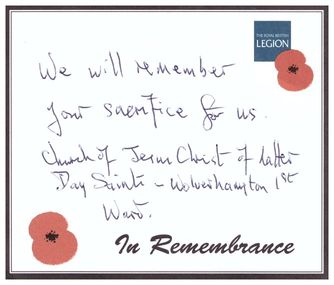 THE ROYAL BRITISH
LEGION
We will remember
your sacrifice for us.
Church of Jesus Christ of latter
Day Saints - Wolverhampton 1st
Ward.
In Remembrance